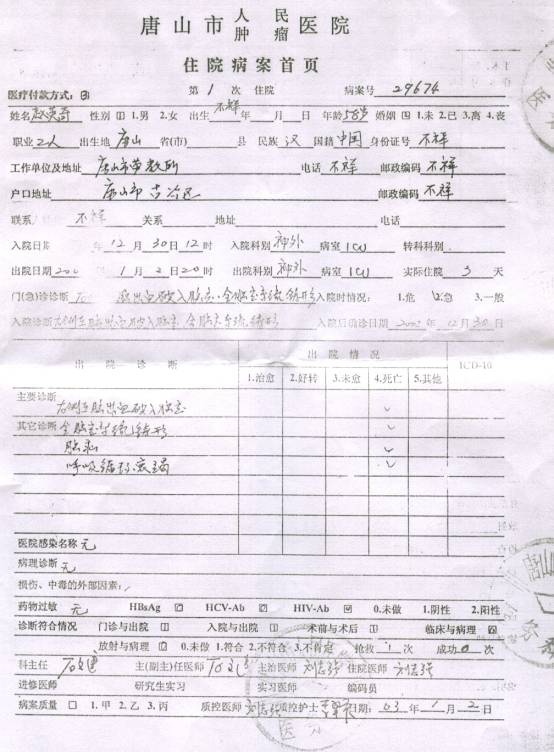 唐山市人民肿瘤医院
住院病案首页
医疗付款方式: 第1次 住院 病案号 29674
姓名 赵英奇 性别 1.男 2.女 出生 不祥 年 月 日 年龄 58岁 婚姻 1.未 2.已 3.离 4.丧
职业 工人 出生地 唐山 省(市) 县 民族 汉 国籍 中国 身份证号 不祥
工作单位及地址 唐山市劳教所 电话 不祥 邮政编码 不祥
户口地址 唐山市古冶区 邮政编码 不祥
联系 不祥 关系 地址 电话
入院日期 年 12 月 30 日 12 时 入院科别 神外 病室 ICU 转科科别
出院日期 200 年 1 月 2 日 20 时 出院科别 神外 病室 ICU 实际住院 3 天
门(急)诊诊断 脑出血破入脑室、全脑室系统铸形 入院时情况: 1.危 2.急 3.一般
入院诊断 脑出血破入脑室、全脑室系统铸形 入院后确诊日期 2002 年 12 月 30 日
出院诊断 出院情况 ICD-10
1.治愈 2.好转 3.未愈 4.死亡 5.其他
主要诊断 脑出血破入脑室
其它诊断 全脑室系统铸形
脑疝
呼吸循环衰竭
医院感染名称 无
病理诊断 无
损伤、中毒的外部因素:
药物过敏 无 HBsAg HCV-Ab HIV-Ab 0.未做 1.阴性 2.阳性
诊断符合情况 门诊与出院 入院与出院 术前与术后 临床与病理
放射与病理 0.未做 1.符合 2.不符合 3.不肯定 抢救 1 次 成功 0 次
科主任 主(副主)任医师 主治医师 住院医师
进修医师 研究生实习 实习医师 编码员
病案质量 1.甲 2.乙 3.丙 质控医师 质控护士 日期: 03 年 1 月 2 日